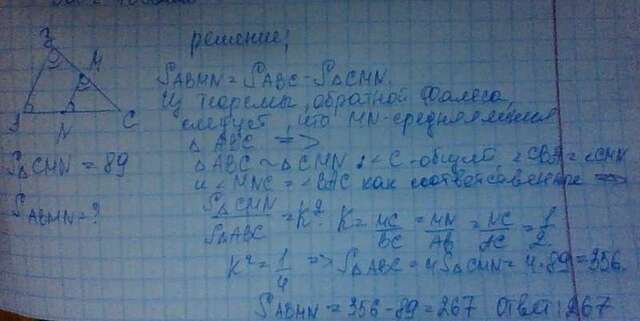 решение;
B
M
A
N
C
S△CMN = 89
SABMN = ?
SABMN = SABC - S△CMN.
Из теоремы, обратной Фалеса,
следует, что MN - средняя линия
△ABC =>
△ABC ~ △CMN: ∠C - общий, ∠CBA = ∠CMN
и ∠MNC = ∠BAC как соответсвенные =>
S△CMN / S△ABC = K². K = MC/BC = MN/AB = NC/AC = 1/2
K² = 1/4 => S△ABC = 4S△CMN = 4·89 = 356.
SABMN = 356 - 89 = 267 Ответ: 267